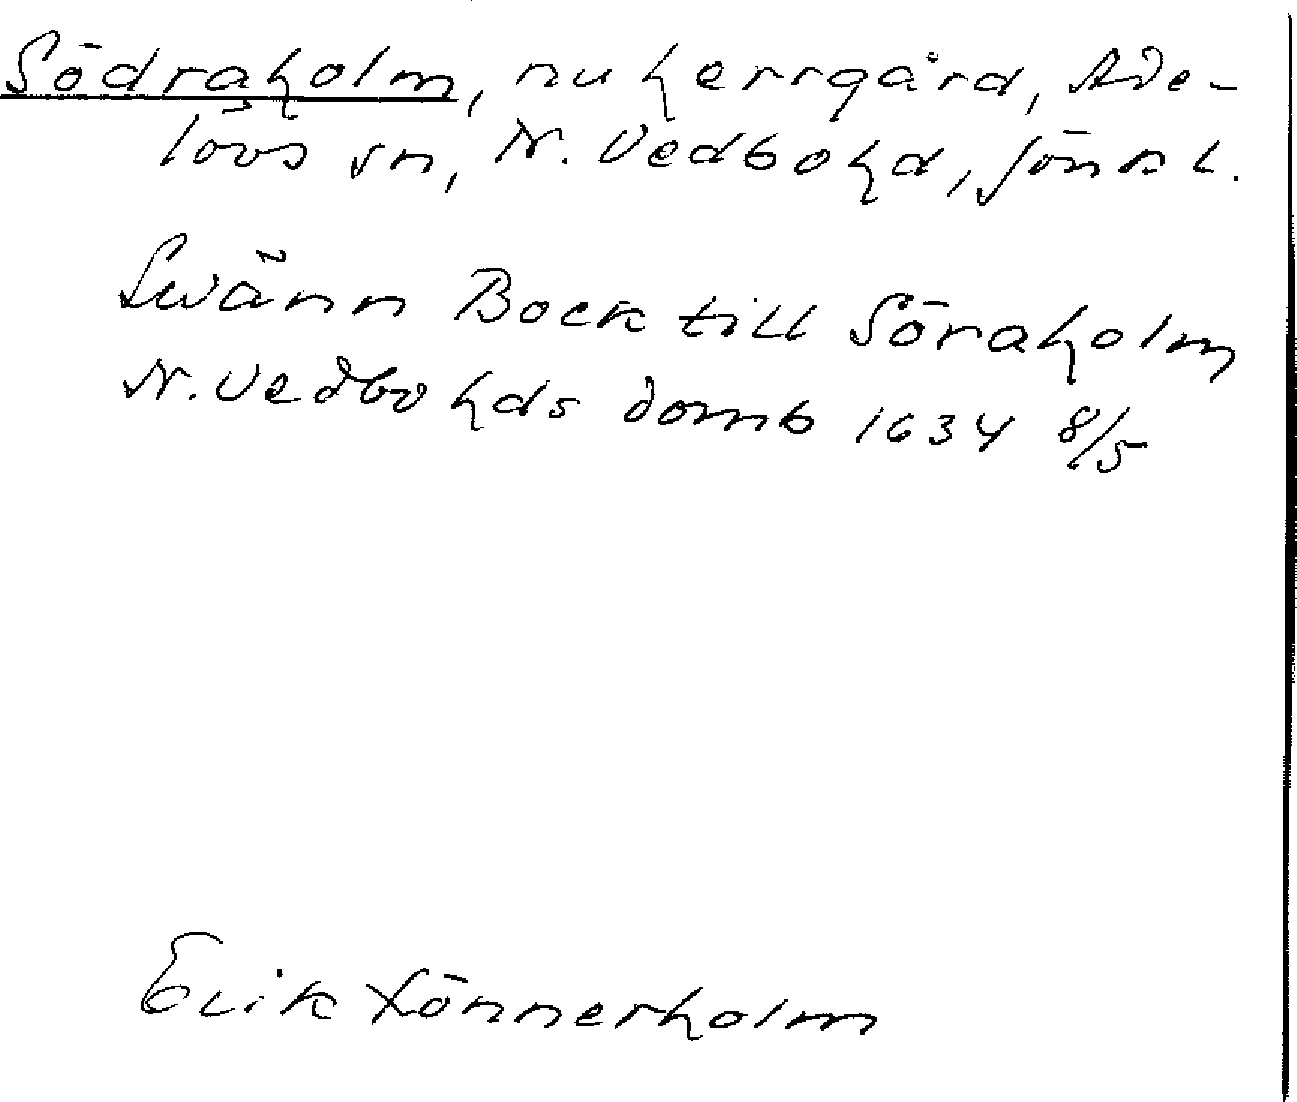 Södraholm, nu herrgård, Ade-
lövs sn, N. Vedbo hd, Jönk l.
Swänn Bock till Söraholm
N. Vedbo hds domb 1634 8/5
Erik Lönnerholm